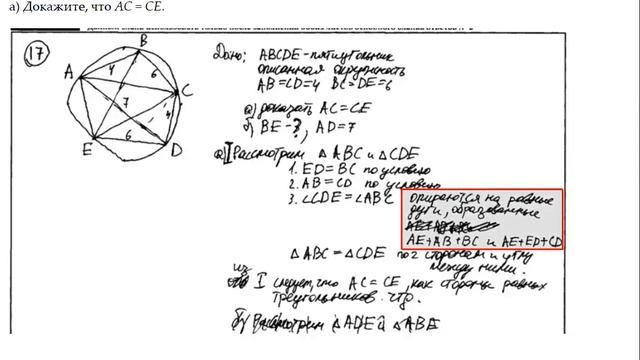 а) Докажите, что AC = CE.
17
B
A 4 6 C
7 4
E 6 D
Дано: ABCDE - пятиугольник
описанная окружность
AB=CD=4 BC=DE=6
а) доказать AC=CE
б) BE-?, AD=7
а) I Рассмотрим △ ABC и △CDE
1. ED=BC по условию
2. AB=CD по условию
3. ∠CDE=∠ABC
опираются на равные
дуги, образованные
AE+AB+BC и AE+ED+CD
△ ABC = △CDE по 2 сторонам и углу
между ними.
из I следует, что AC=CE, как стороны равных
треугольников. чтд.
б) Рассмотрим △ADE и △ABE